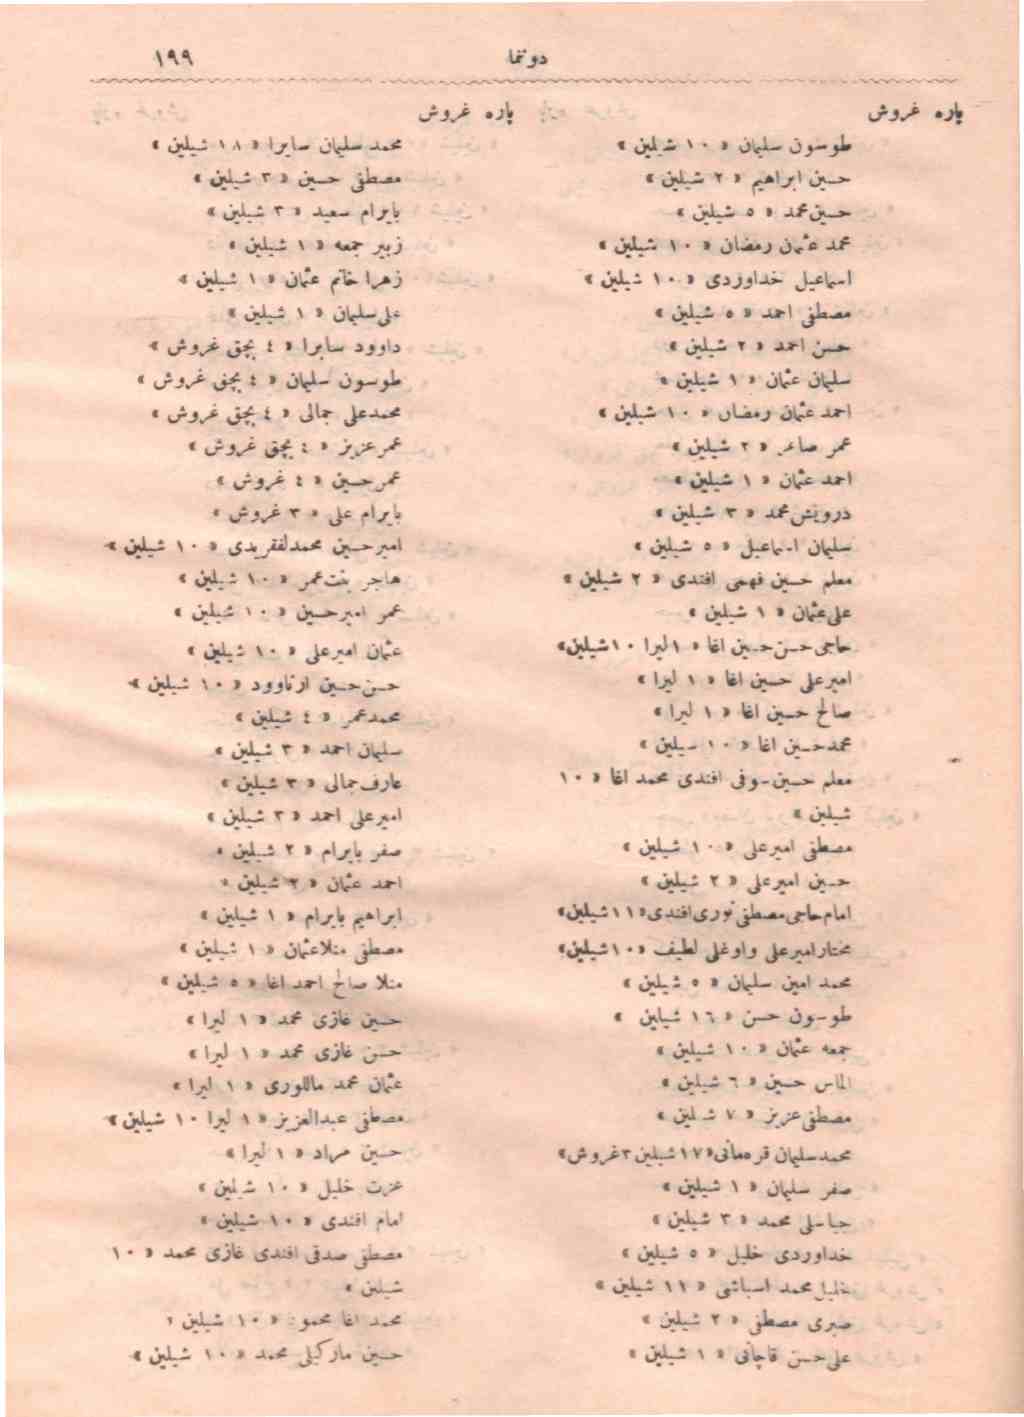 دوننما ١٩٩
پاره غروش
طوسون سلیمان « ١٠ شیلین »
حسین ابراهیم « ٢ شیلین »
حسین محمد « ٥ شیلین »
محمد عثمان رمضان « ١٠ شیلین »
اسماعیل خداوردی « ١٠ شیلین »
مصطفی احمد « ٥ شیلین »
حسن احمد « ٢ شیلین »
سلیمان عثمان « ١ شیلین »
احمد عثمان رمضان « ١٠ شیلین »
عمر « ٢ شیلین »
احمد عثمان « ١ شیلین »
درویش محمد « ٣ شیلین »
سلیمان اسماعیل « ٥ شیلین »
معلم حسین فهمی افندی « ٢ شیلین »
علی عثمان « ١ شیلین »
حاجی حسن حسین اغا « ١ لیرا ١٠ شیلین »
امیرعلی حسین اغا « ١ لیرا »
صالح حسین اغا « ١ لیرا »
محمدحسین اغا « ١٠ شیلین »
معلم حسین صوفی افندی محمد اغا « ١٠
شیلین »
مصطفی امیرعلی « ١٠ شیلین »
حسین امیرعلی « ٢ شیلین »
امام حاجی مصطفی نوری افندی « ١١ شیلین »
مختار امیرعلی واوغلی لطیف « ١٠ شیلین »
محمد امین سلیمان « ٥ شیلین »
طوسون حسن « ١٦ شیلین »
جمعه عثمان « ١٠ شیلین »
الماس حسین « ٦ شیلین »
مصطفی عزیز « ٧ شیلین »
محمدسلیمان قره‌مانی « ١٧ شیلین ٣ غروش »
صفر سلیمان « ١ شیلین »
محمد « ٣ شیلین »
خداوردی خلیل « ٥ شیلین »
خلیل محمد اسباشی « ١١ شیلین »
صبری مصطفی « ٢ شیلین »
علی حسن قاچانی « ١ شیلین »
پاره غروش
محمد سلیمان سابرا « ١٨ شیلین »
مصطفی حسین « ٣ شیلین »
بایرام سعید « ٣ شیلین »
زبیر جمعه « ١ شیلین »
زهرا خانم عثمان « ١ شیلین »
علی سلیمان « ١ شیلین »
داوود سابرا « ٤ بچق غروش »
طوسون سلیمان « ٤ بچق غروش »
محمدعلی جمالی « ٤ بچق غروش »
عمرعزیز « ٤ بچق غروش »
عمرحسین « ٤ غروش »
بایرام علی « ٣ غروش »
امیرحسین محمدلفقریدی « ١٠ شیلین »
هاجر بنت عمر « ١٠ شیلین »
عمر امیرحسین « ١٠ شیلین »
عثمان امیرعلی « ١٠ شیلین »
حسن حسین ارناوود « ١٠ شیلین »
محمدعمر « ٤ شیلین »
سلیمان احمد « ٣ شیلین »
عارف جمالی « ٣ شیلین »
امیرعلی احمد « ٣ شیلین »
صفر بایرام « ٢ شیلین »
احمد عثمان « ٢ شیلین »
ابراهیم بایرام « ١ شیلین »
مصطفی منلاعثمان « ١ شیلین »
منلا صالح احمد اغا « ٥ شیلین »
حسین غازی محمد « ١ لیرا »
حسن غازی محمد « ١ لیرا »
عثمان محمد ماللوری « ١ لیرا »
مصطفی عبدالعزیز « ١ لیرا ١٠ شیلین »
حسین مراد « ١ لیرا »
عزت خلیل « ١٠ شیلین »
امام افندی « ١٠ شیلین »
مصطفی صدقی افندی غازی محمد « ١٠
شیلین »
محمد اغا محمود « ١٠ شیلین »
حسین مارکیلی محمد « ١٠ شیلین »